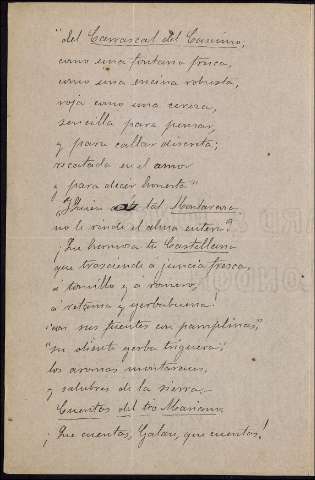 "del Carrascal del Casuno,
como una fontana fresca,
como una encina robusta,
roja como una cereza,
sencilla para pensar,
y para callar discreta;
recatada en el amor
y para decir honesta"
¿Quien á tal Montaraza
no le rinde el alma entera?
¡Que hermosa tu Castellana
que trasciende á juncia fresca,
á tomillo y á romero,
á retama y yerbabuena!
"con sus fuentes con pamplinas",
"su oliente yerba triguera";
los aromas montaraces,
y salubres de la sierra,
Cuentos del tio Mariano,
¡Que cuentos, Galan, que cuentos!